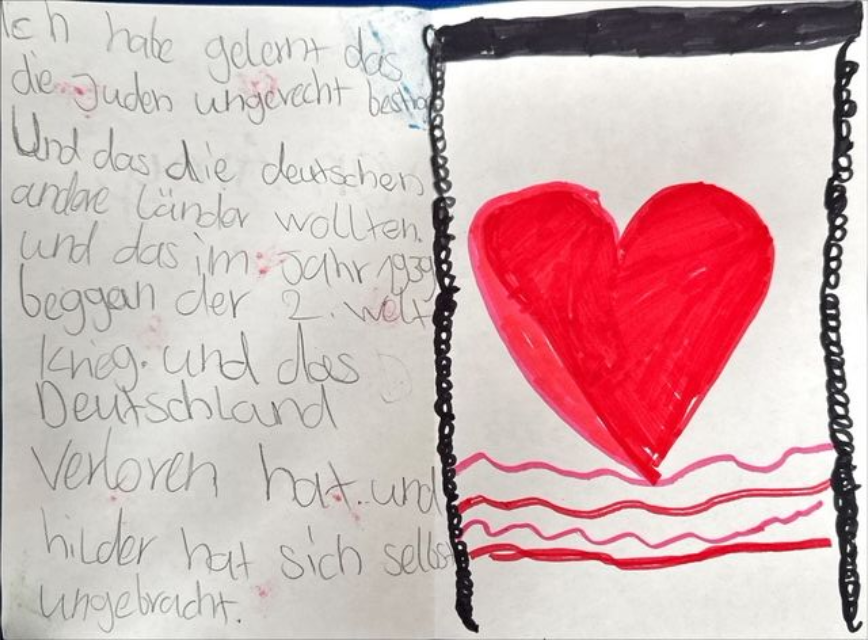 Ich habe gelernt das
die Juden ungerecht
Und das die deutschen
andare Länder wollten.
und das im Jahr 1939
beggan der 2. welt
krieg. und das
Deutschland
Verloren hat. und
hilder hat sich selbst
ungebracht.